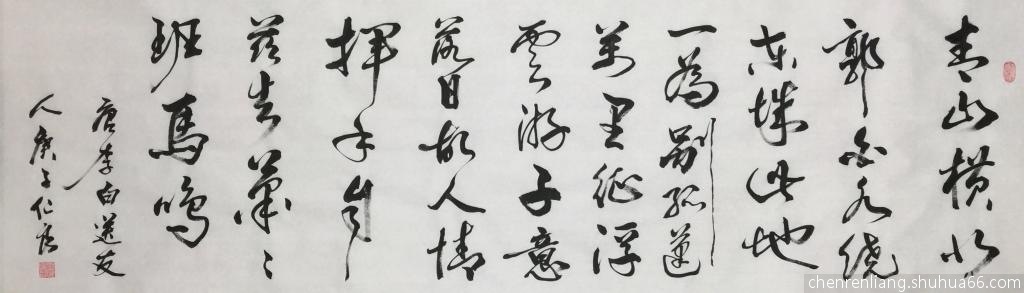 青山橫北
郭白水繞
東城此地
一為別孤蓬
萬里征浮
雲游子意
落日故人情
揮手自
茲去蕭〻
班馬鳴
唐李白送友
人庚子仁良
chenrenliang.shuhua66.com